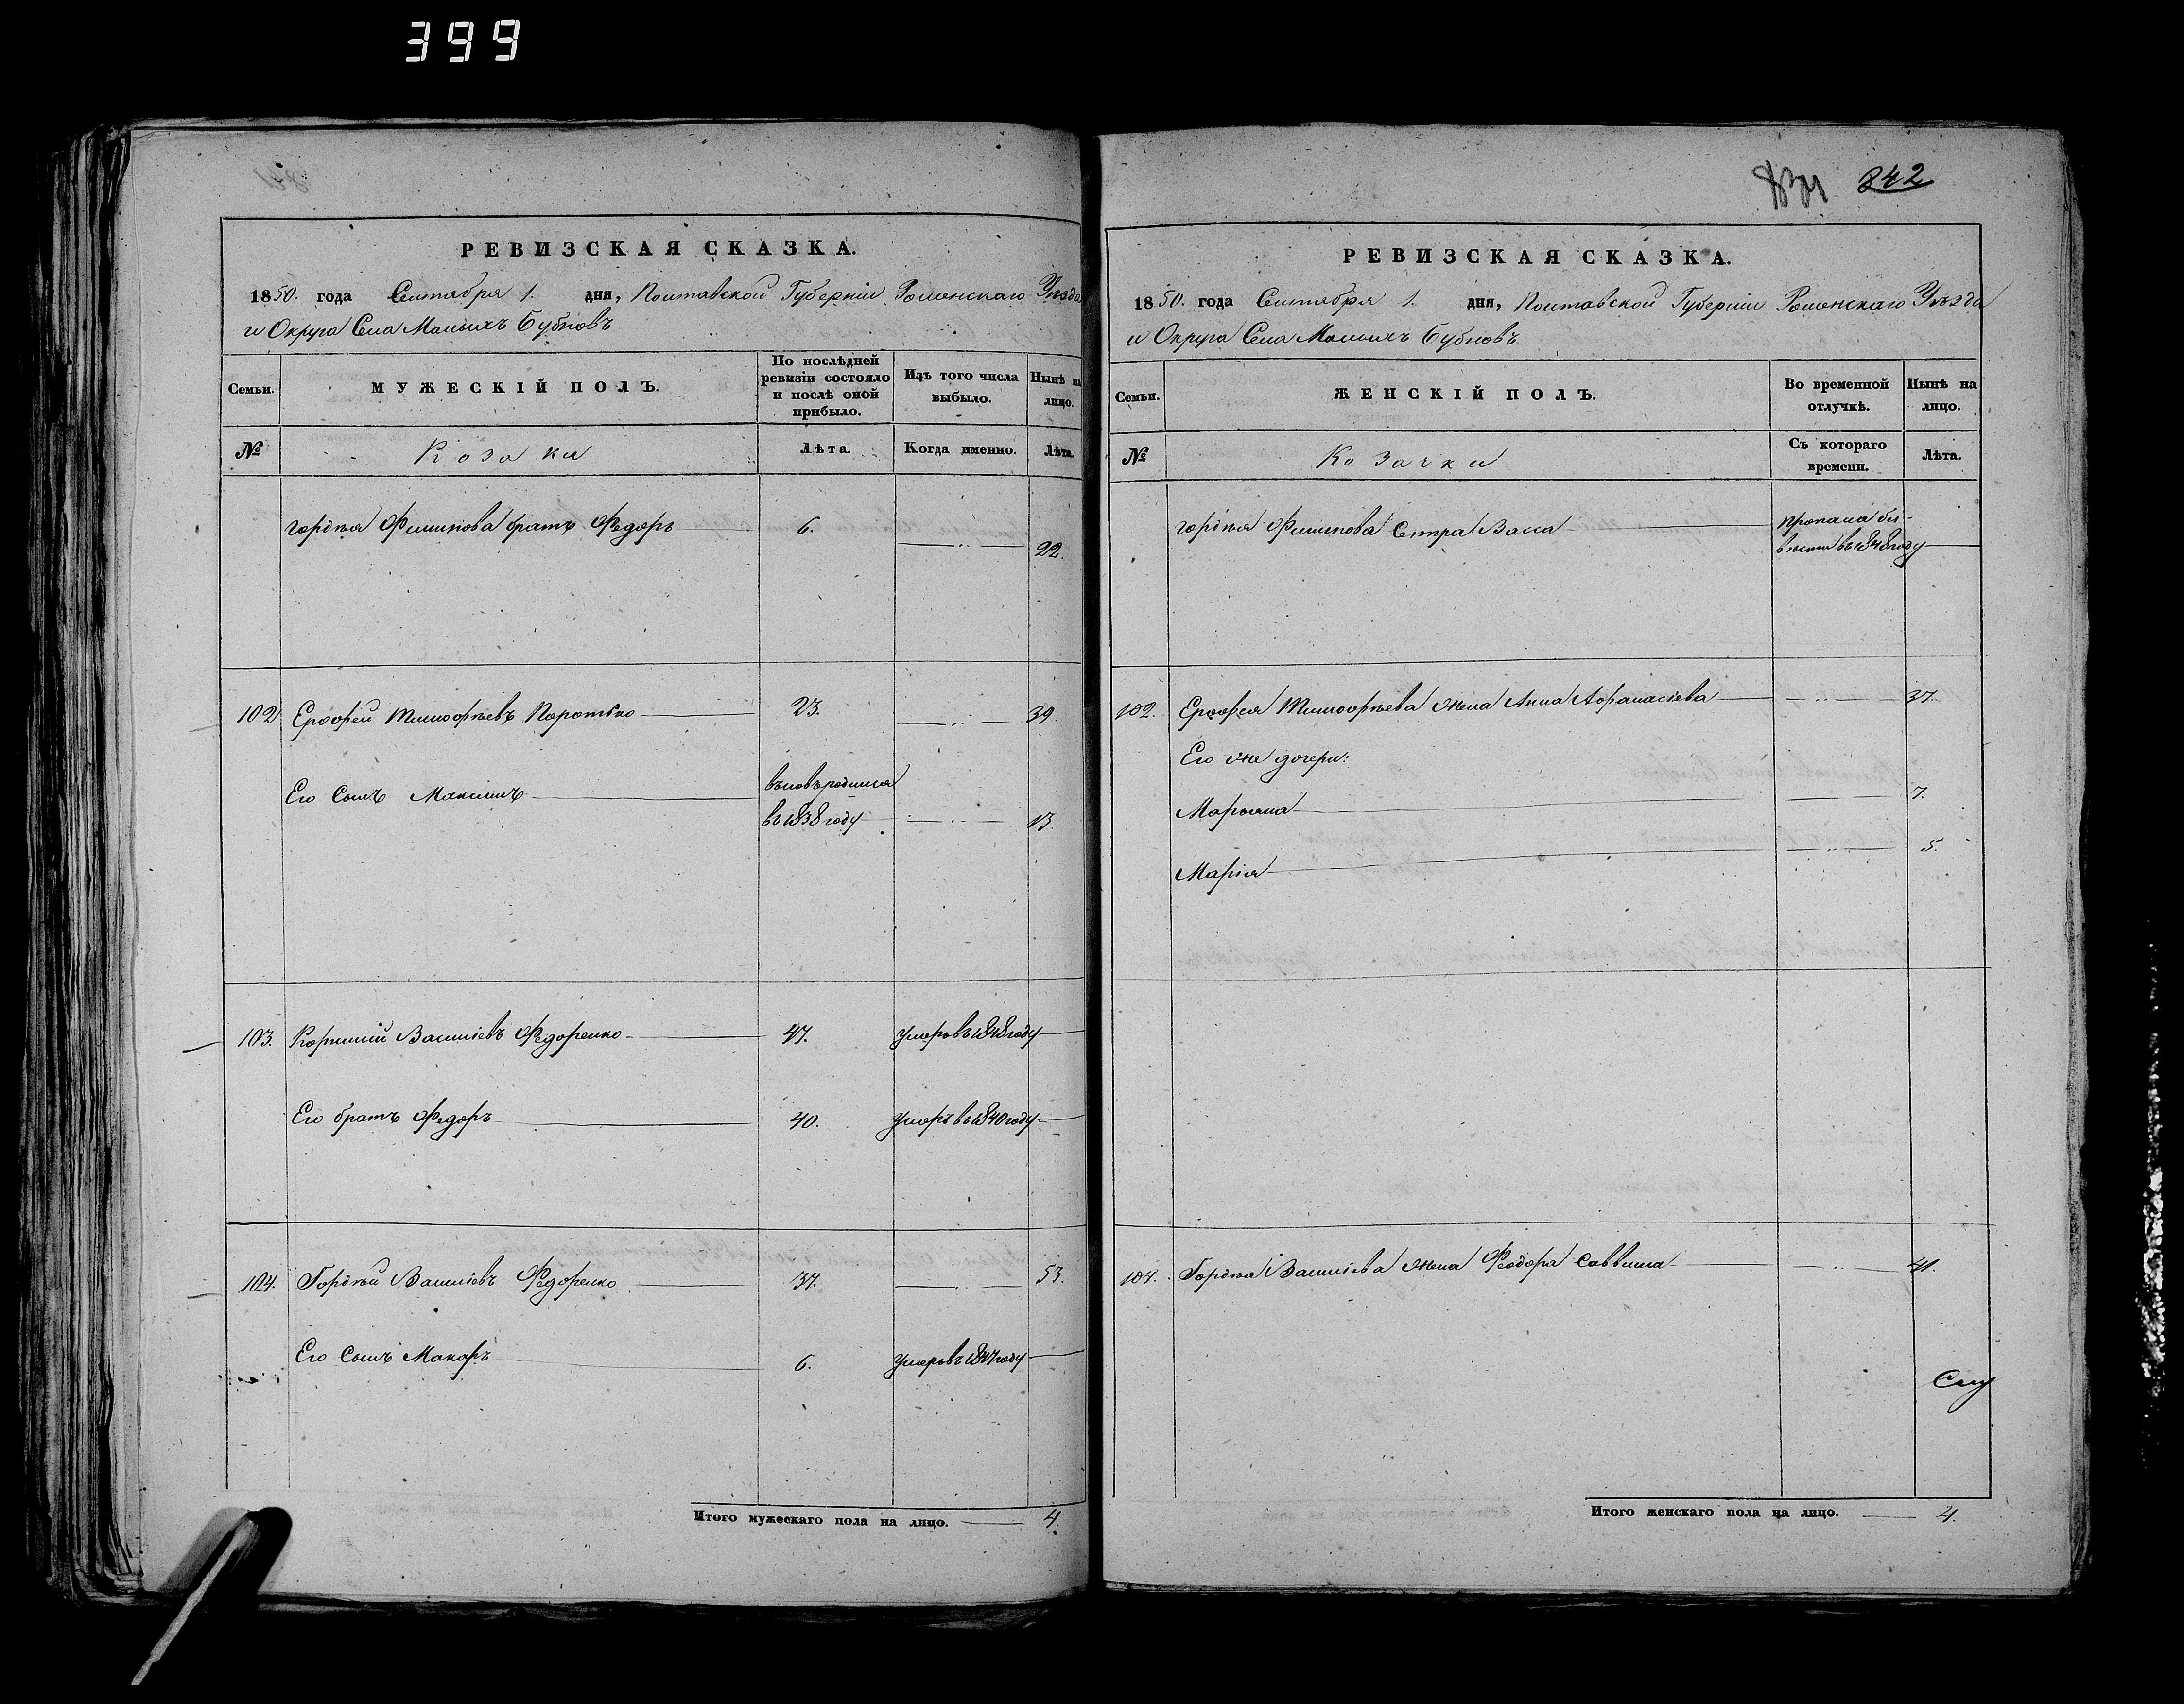 399
842
РЕВИЗСКАЯ СКАЗКА.
1850. года Сентября 1. дня, Полтавской Губерніи Роменскаго Уѣзда
и Округа Села Малыхъ Бубновъ
Семьи.
МУЖЕСКІЙ ПОЛЪ.
По послѣдней ревизіи состояло и послѣ оной прибыло.
Изъ того числа выбыло.
Нынѣ на лицо.
№
Козаки
Лѣта.
Когда именно.
Лѣта.
Гордѣя Филипова братъ Федоръ 6. 22.
102 Ерофей Тимофѣевъ Коротько 23. 39.
Его Сынъ Максимъ вновь родился
въ 1838 году 13.
103. Корнилій Василіевъ Федоренко 47. Умеръ въ 1848 году
Его братъ Федоръ 40. Умеръ въ 1840 году
104. Гордѣй Василіевъ Федоренко 37. 53.
Его Сынъ Макаръ 6. Умеръ въ 1847 году
Итого мужескаго пола на лицо. 4.
РЕВИЗСКАЯ СКАЗКА.
1850. года Сентября 1. дня, Полтавской Губерніи Роменскаго Уѣзда
и Округа Села Малыхъ Бубновъ
Семьи.
ЖЕНСКІЙ ПОЛЪ.
Во временной отлучкѣ.
Нынѣ на лицо.
№
Козачки
Съ котораго времени.
Лѣта.
Гордѣя Филипова Сестра Васса пропала безъ
вѣсти въ 1848 году
102. Ерофея Тимофѣева жена Анна Афанасіева 37.
Его же дочери:
Марьяна 7.
Марія 5.
104. Гордѣя Василіева жена Феодора Саввина 41.
Итого женскаго пола на лицо. 4.